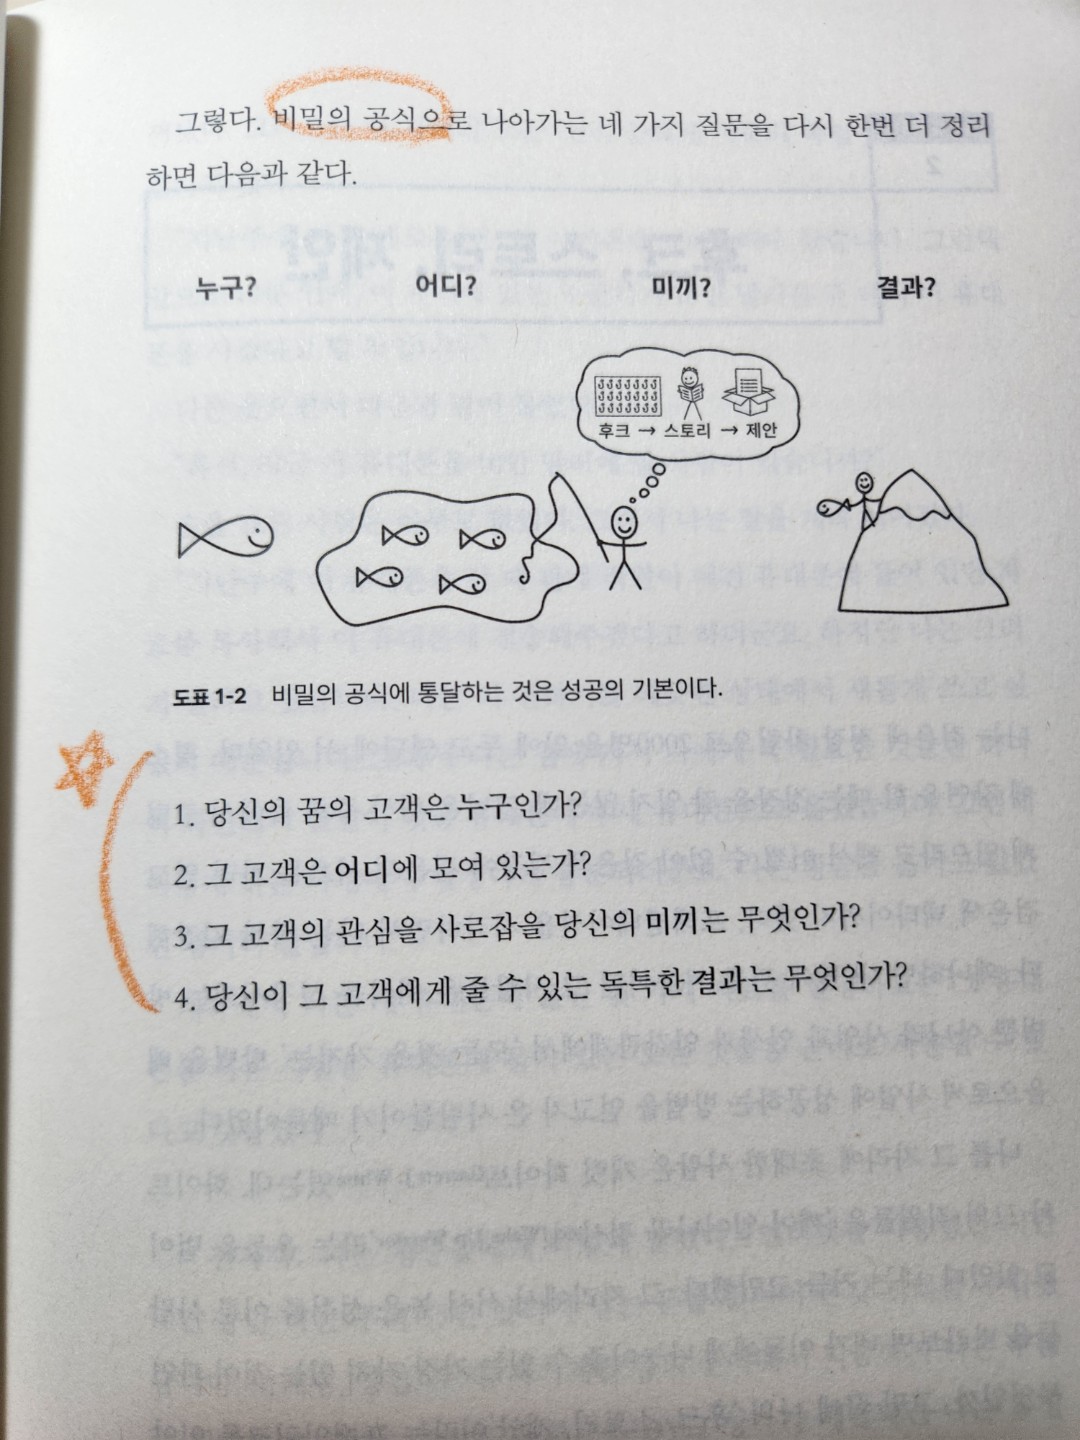 그렇다. 비밀의 공식으로 나아가는 네 가지 질문을 다시 한번 더 정리
하면 다음과 같다.
누구? 어디? 미끼? 결과?
후크 → 스토리 → 제안
도표 1-2 비밀의 공식에 통달하는 것은 성공의 기본이다.
1. 당신의 꿈의 고객은 누구인가?
2. 그 고객은 어디에 모여 있는가?
3. 그 고객의 관심을 사로잡을 당신의 미끼는 무엇인가?
4. 당신이 그 고객에게 줄 수 있는 독특한 결과는 무엇인가?